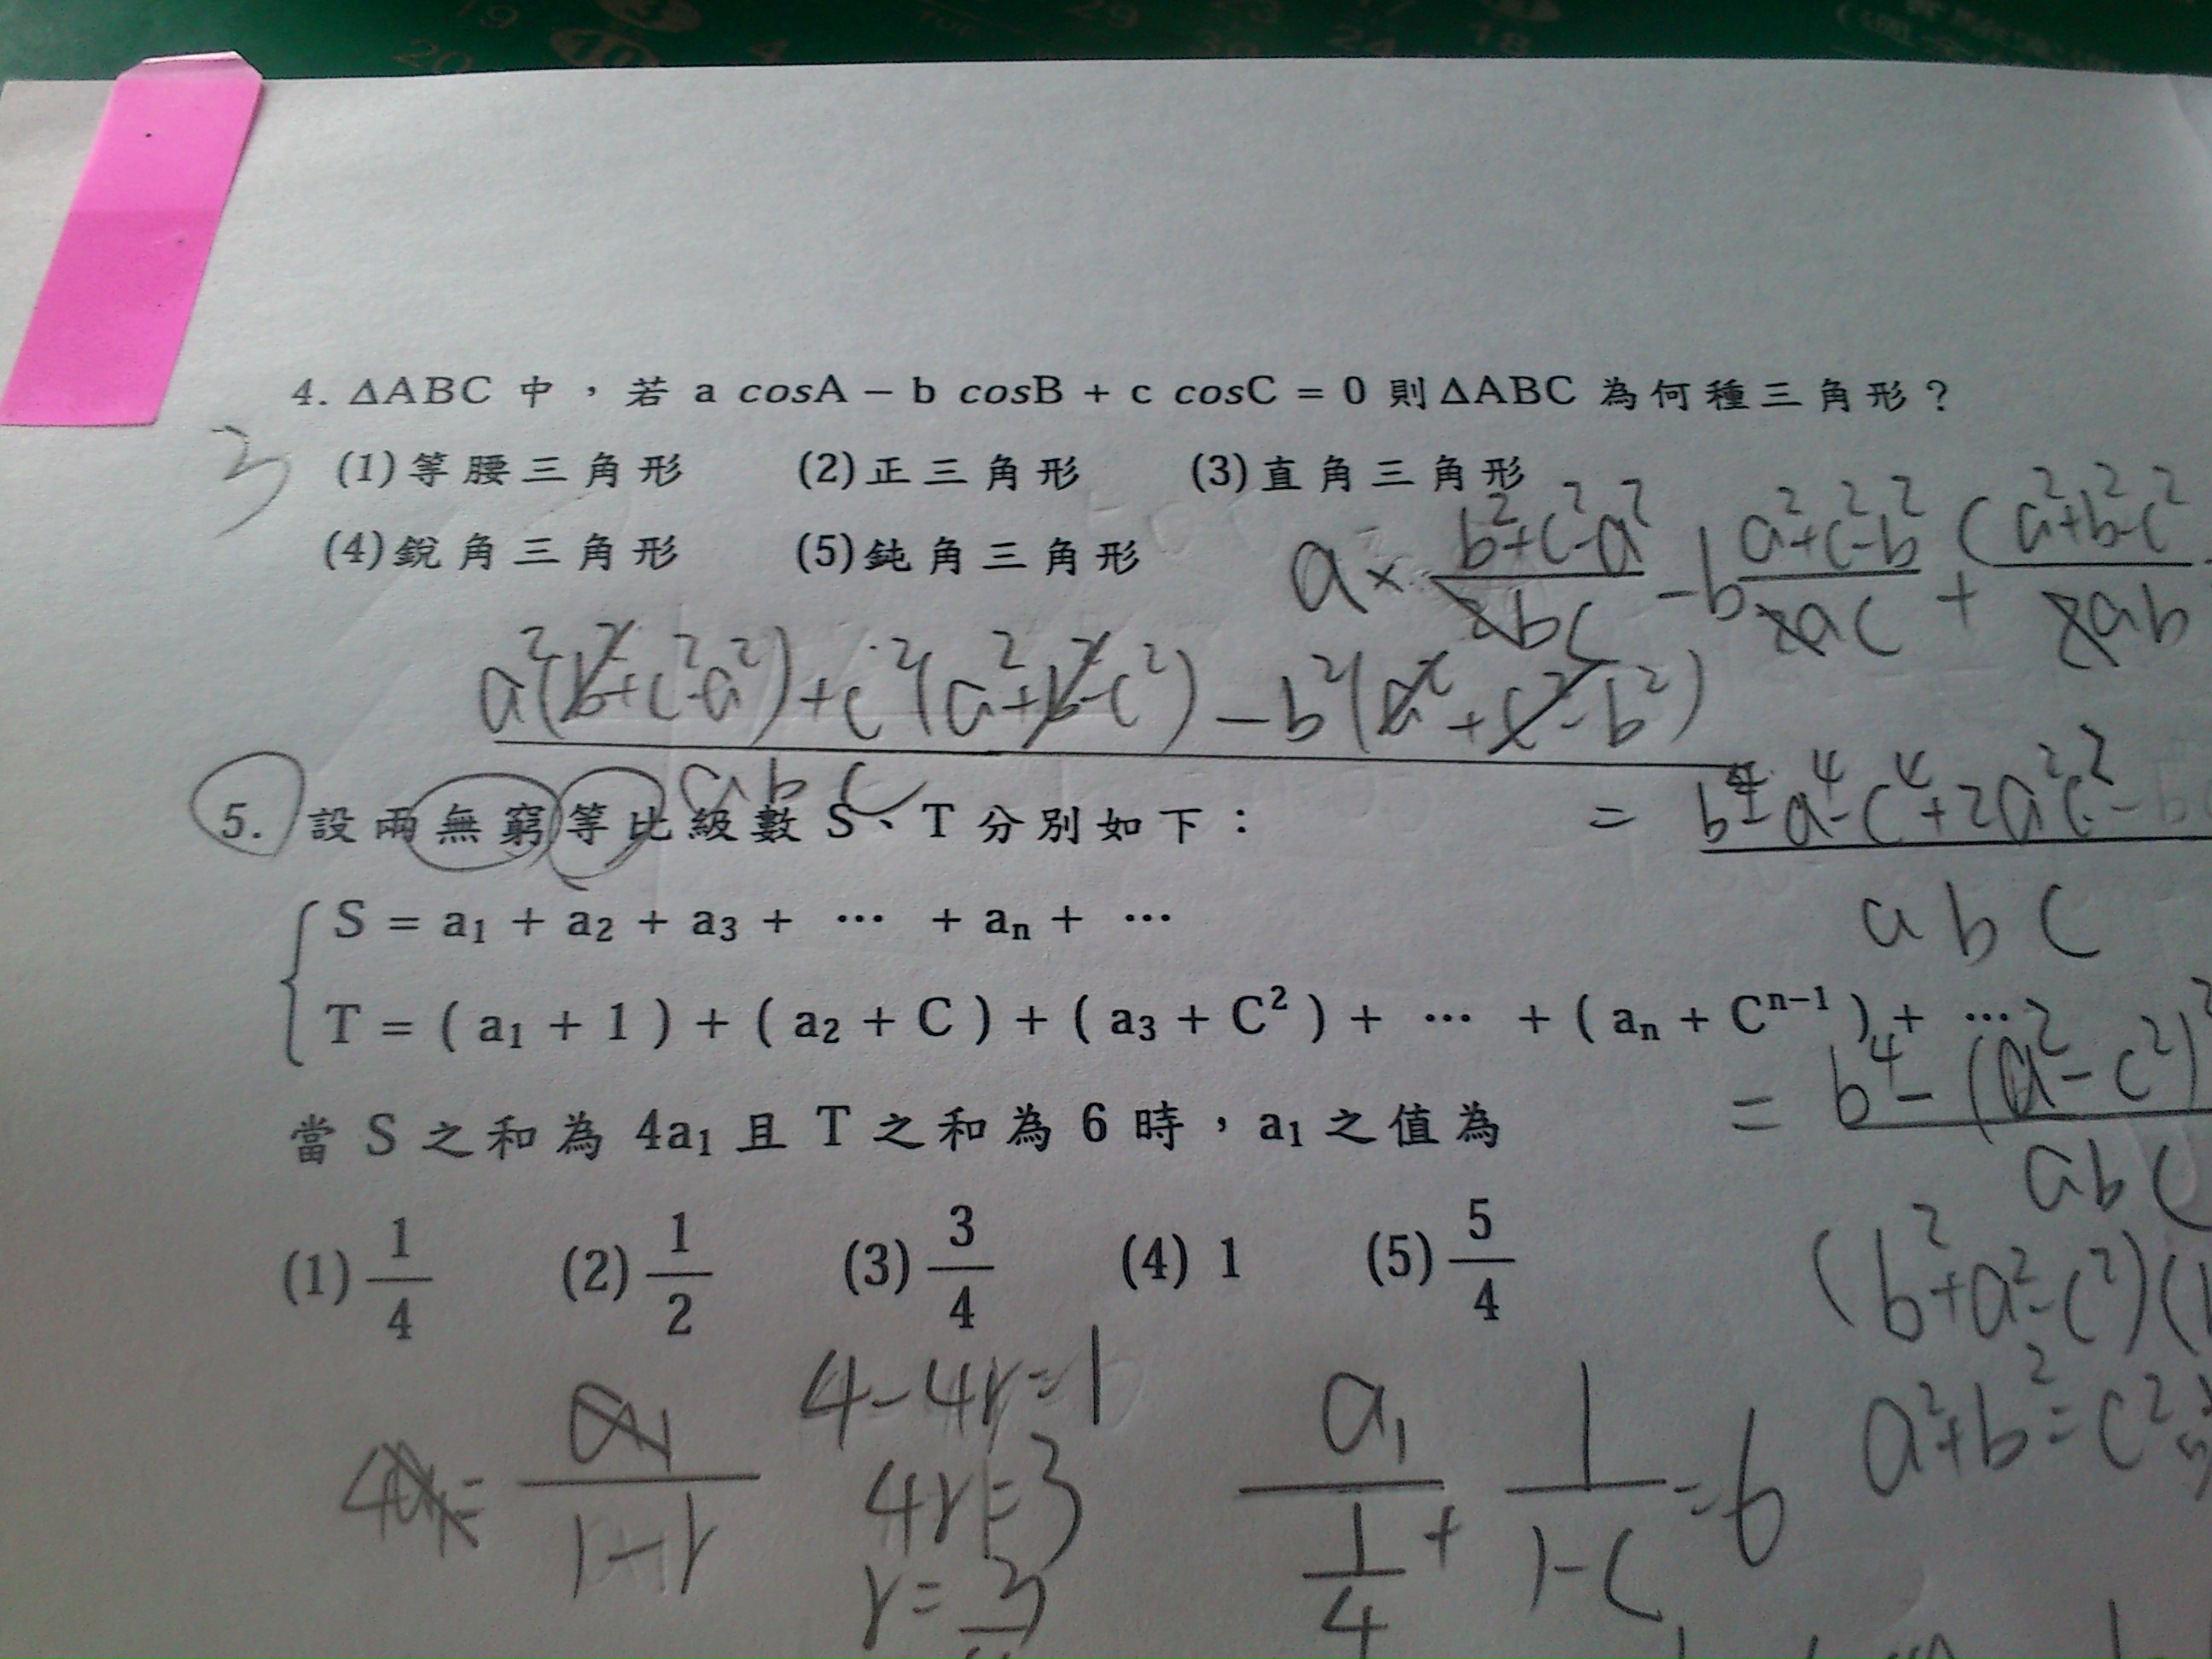 19
20
4
29
30
23
24
17
18
TUE
4. ΔABC 中，若 a cosA − b cosB + c cosC = 0 則ΔABC 為何種三角形？
3
(1)等腰三角形 (2)正三角形 (3)直角三角形
(4)銳角三角形 (5)鈍角三角形
a× (b²+c²-a²)/(2bc) - b (a²+c²-b²)/(2ac) + c (a²+b²-c²)/(2ab)
a²(b²+c²-a²)+c²(a²+b²-c²)-b²(a²+c²-b²)
abc
= b⁴-a⁴-c⁴+2a²c²
abc
5. 設兩無窮等比級數 S、T 分別如下：
S = a₁ + a₂ + a₃ + ⋯ + aₙ + ⋯
T = ( a₁ + 1 ) + ( a₂ + C ) + ( a₃ + C² ) + ⋯ + ( aₙ + Cⁿ⁻¹ ) + ⋯
= b⁴-(a²-c²)²
abc
當 S 之和為 4a₁ 且 T 之和為 6 時，a₁ 之值為
(1) 1/4 (2) 1/2 (3) 3/4 (4) 1 (5) 5/4
(b²+a²-c²)(
a²+b²=c²
4a₁= a₁/(1-r)
4-4r=1
4r=3
r=3
a₁/(1/4) + 1/(1-c) =6